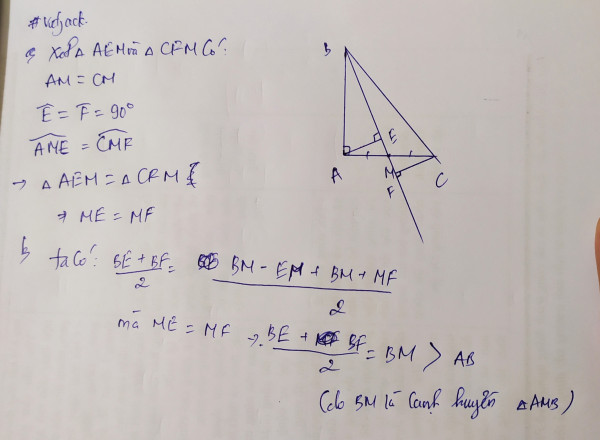 #vietjack.
a, Xét △ AEM và △ CFM Có:
AM = CM
Ê = F̂ = 90°
ÂME = ĈMF
→ △ AEM = △ CFM
⇒ ME = MF
b, ta Có: (BE + BF)/2 = (BM - EM + BM + MF)/2
mà ME = MF → (BE + BF)/2 = BM > AB
(do BM là Cạnh huyền △AMB)
B
E
A
M
C
F